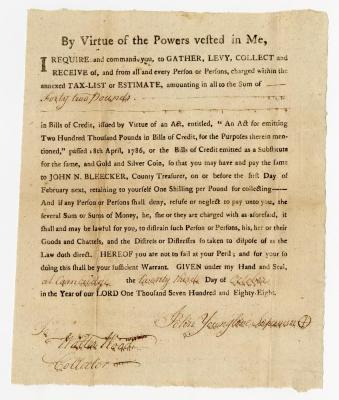 By Virtue of the Powers veſted in Me,
I REQUIRE and command you, to GATHER, LEVY, COLLECT and
RECEIVE of, and from all and every Perſon or Perſons, charged within the
annexed TAX-LIST or ESTIMATE, amounting in all to the Sum of
Forty two pounds
in Bills of Credit, iſſued by Virtue of an Act, entitled, "An Act for emitting
Two Hundred Thouſand Pounds in Bills of Credit, for the Purpoſes therein men-
tioned," paſſed 18th April, 1786, or the Bills of Credit emitted as a Subſtitute
for the ſame, and Gold and Silver Coin, ſo that you may have and pay the ſame
to JOHN N. BLEECKER, County Treaſurer, on or before the firſt Day of
February next, retaining to yourſelf One Shilling per Pound for collecting——
And if any Perſon or Perſons ſhall deny, refuſe or neglect to pay unto you, the
ſeveral Sum or Sums of Money, he, ſhe or they are charged with as aforeſaid, it
ſhall and may be lawful for you, to diſtrain ſuch Perſon or Perſons, his, her or their
Goods and Chattels, and the Diſtreſs or Diſtreſſes ſo taken to diſpoſe of as the
Law doth direct. HEREOF you are not to fail at your Peril; and for your ſo
doing this ſhall be your ſufficient Warrant. GIVEN under my Hand and Seal,
at Cambridge the twenty Day of October
in the Year of our LORD One Thouſand Seven Hundred and Eighty-Eight.
John Younglove Supervisor
To
Collector